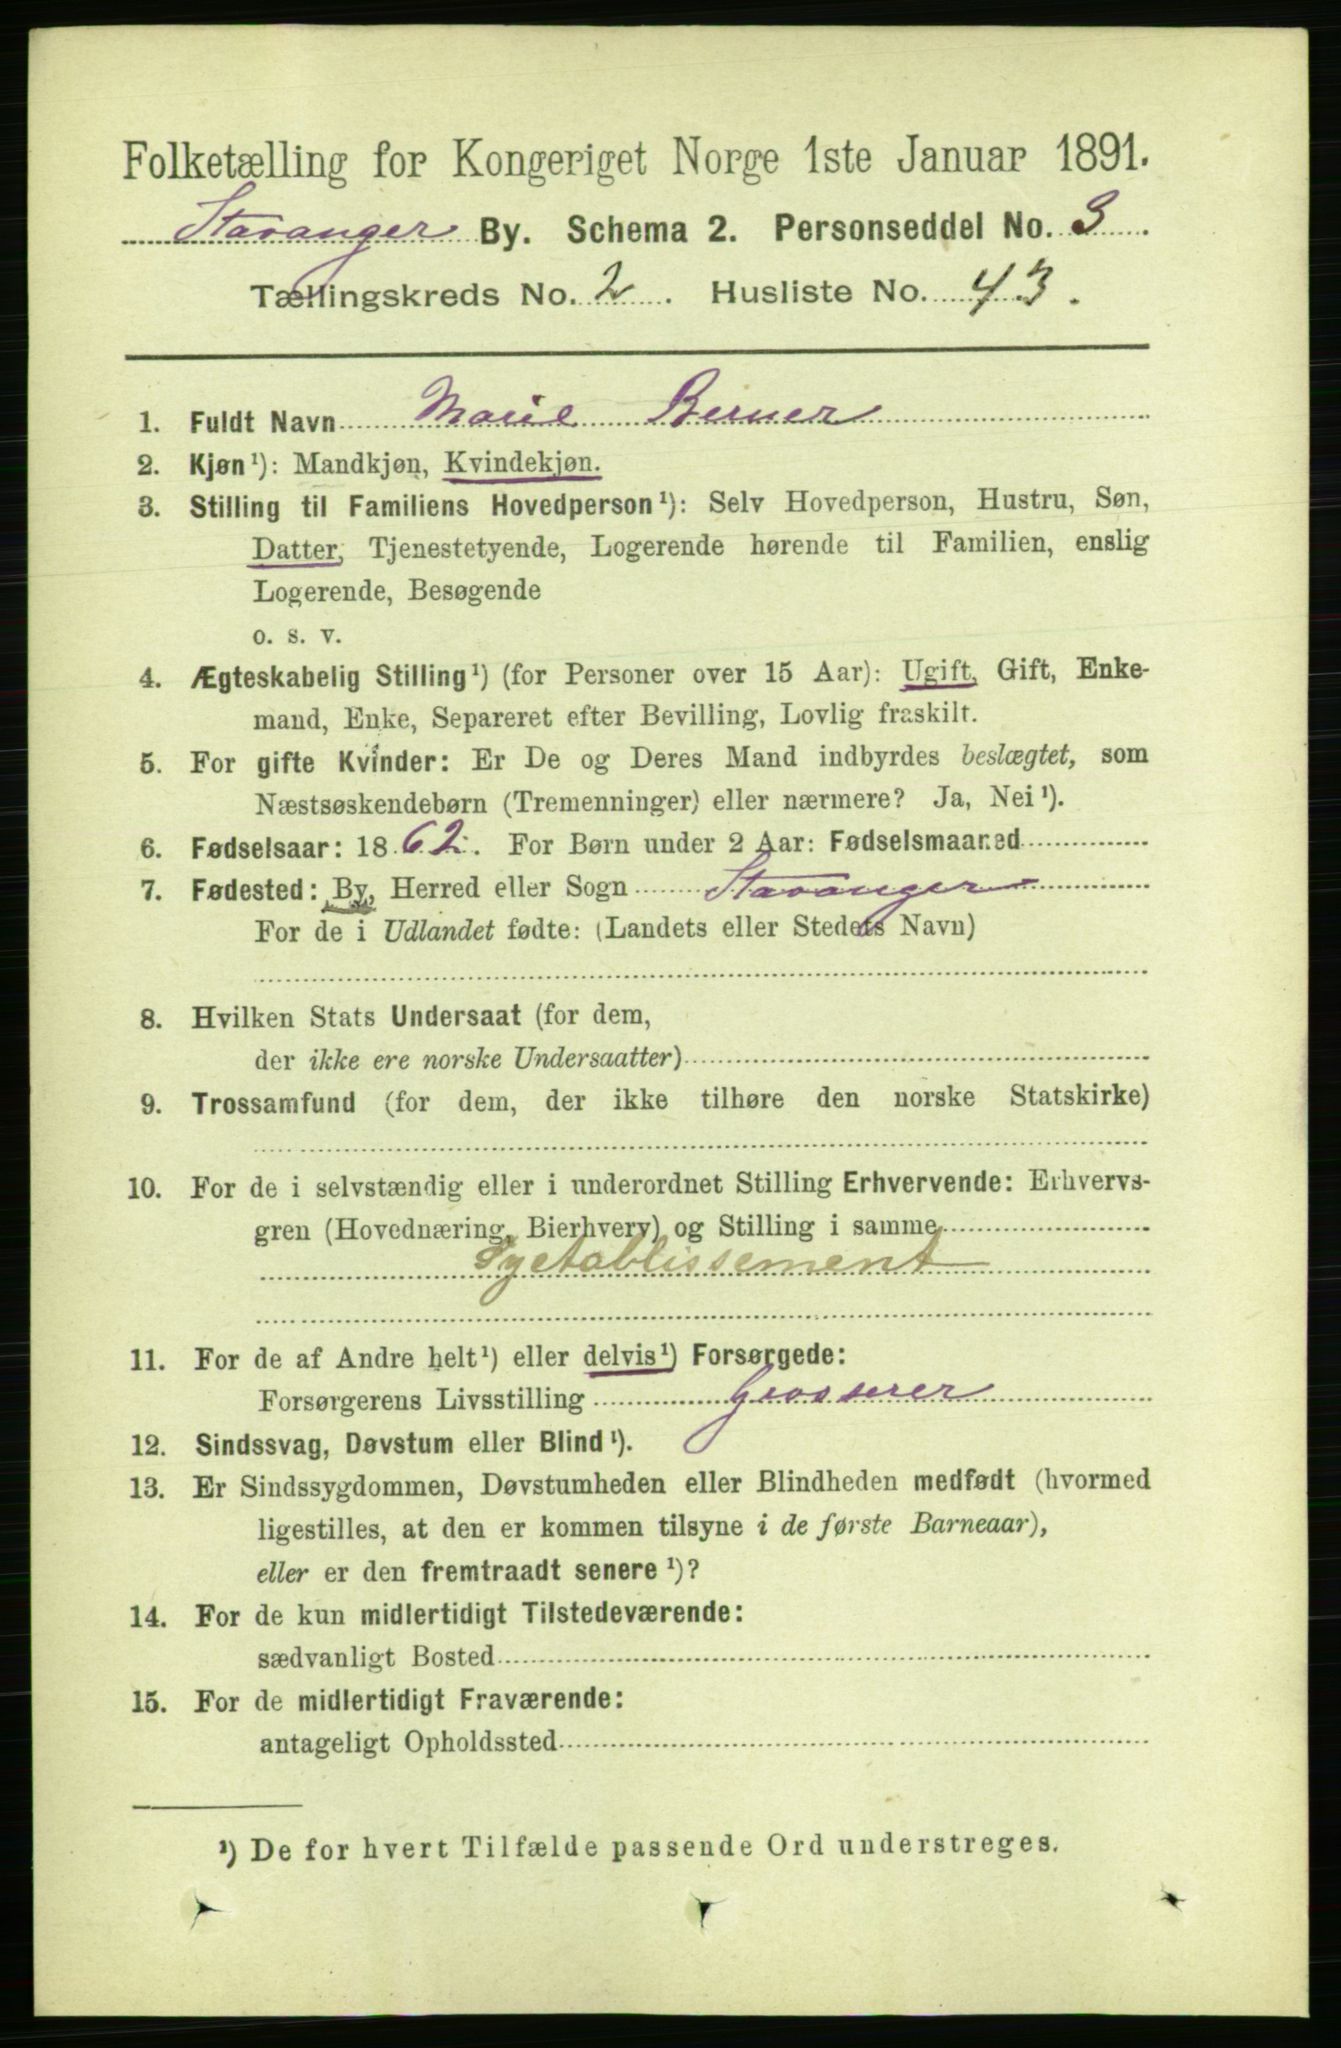 Folketælling for Kongeriget Norge 1ste Januar 1891.
Stavanger By. Schema 2. Personseddel No. 3.
Tællingskreds No. 2. Husliste No. 43.
1. Fuldt Navn Marie Berner
2. Kjøn¹): Mandkjøn, Kvindekjøn.
3. Stilling til Familiens Hovedperson¹): Selv Hovedperson, Hustru, Søn,
Datter, Tjenestetyende, Logerende hørende til Familien, enslig
Logerende, Besøgende
o. s. v.
4. Ægteskabelig Stilling¹) (for Personer over 15 Aar): Ugift, Gift, Enke-
mand, Enke, Separeret efter Bevilling, Lovlig fraskilt.
5. For gifte Kvinder: Er De og Deres Mand indbyrdes beslægtet, som
Næstsøskendebørn (Tremenninger) eller nærmere? Ja, Nei¹).
6. Fødselsaar: 1862. For Børn under 2 Aar: Fødselsmaaned
7. Fødested: By, Herred eller Sogn Stavanger
For de i Udlandet fødte: (Landets eller Stedets Navn)
8. Hvilken Stats Undersaat (for dem,
der ikke ere norske Undersaatter)
9. Trossamfund (for dem, der ikke tilhøre den norske Statskirke)
10. For de i selvstændig eller i underordnet Stilling Erhvervende: Erhvervs-
gren (Hovednæring, Bierhverv) og Stilling i samme
Syetablissement
11. For de af Andre helt¹) eller delvis¹) Forsørgede:
Forsørgerens Livsstilling Grosserer
12. Sindssvag, Døvstum eller Blind¹).
13. Er Sindssygdommen, Døvstumheden eller Blindheden medfødt (hvormed
ligestilles, at den er kommen tilsyne i de første Barneaar),
eller er den fremtraadt senere¹)?
14. For de kun midlertidigt Tilstedeværende:
sædvanligt Bosted
15. For de midlertidigt Fraværende:
antageligt Opholdssted
¹) De for hvert Tilfælde passende Ord understreges.